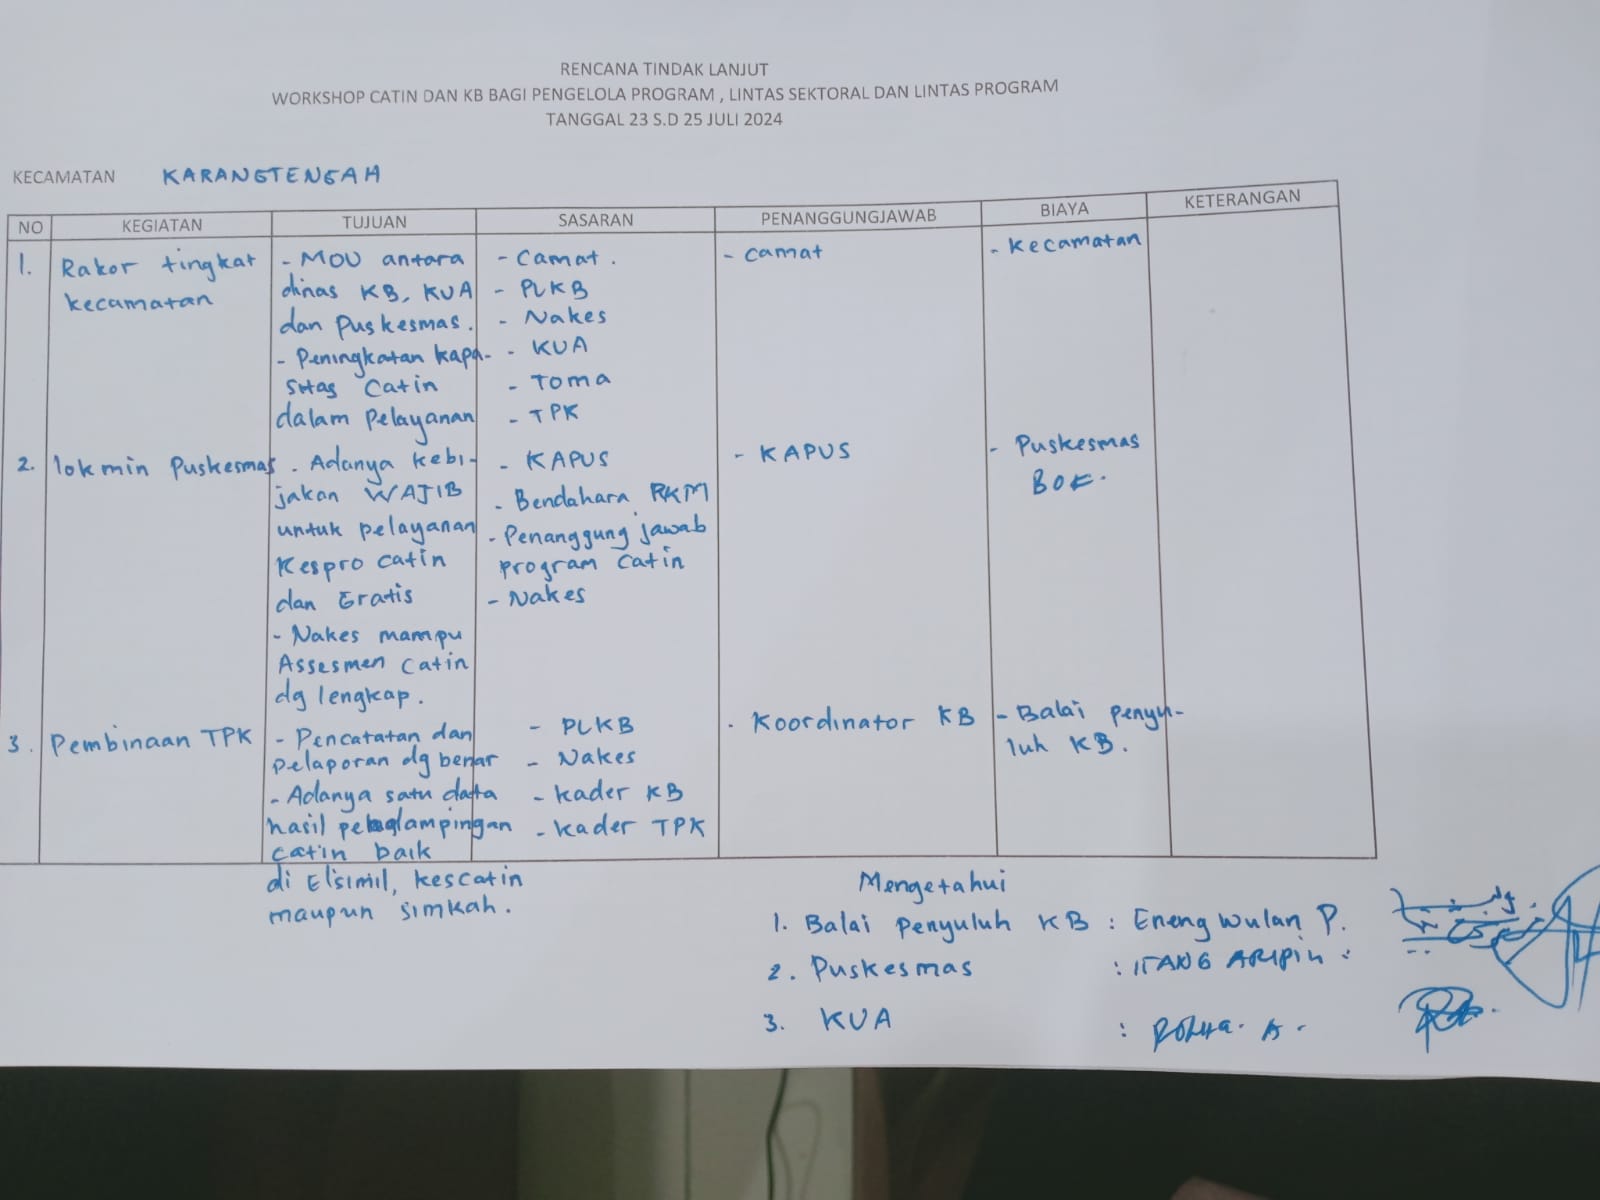 RENCANA TINDAK LANJUT
WORKSHOP CATIN DAN KB BAGI PENGELOLA PROGRAM , LINTAS SEKTORAL DAN LINTAS PROGRAM
TANGGAL 23 S.D 25 JULI 2024
KECAMATAN KARANGTENGAH
NO KEGIATAN TUJUAN SASARAN PENANGGUNGJAWAB BIAYA KETERANGAN
1.
Rakor tingkat
kecamatan
- MOU antara
dinas KB, KUA
dan Puskesmas.
- Peningkatan kapa-
sitas Catin
dalam pelayanan
- Camat.
- PLKB
- Nakes
- KUA
- TOMA
- TPK
- Camat
- Kecamatan
2.
lokmin Puskesmas
. Adanya kebi-
jakan WAJIB
untuk pelayanan
Kespro catin
dan Gratis
- Nakes mampu
Assesmen Catin
dg lengkap.
- KAPUS
- Bendahara RKM
- Penanggung jawab
program Catin
- Nakes
- KAPUS
- Puskesmas
BOK.
3.
Pembinaan TPK
- Pencatatan dan
pelaporan dg benar
- Adanya satu data
hasil
catin baik
di Elsimil, kescatin
maupun simkah.
- PLKB
- Nakes
- kader KB
- kader TPK
- Koordinator KB
- Balai penyu-
luh KB.
Mengetahui
1. Balai Penyuluh KB : Eneng Wulan P.
2. Puskesmas : ARIPIN
3. KUA :